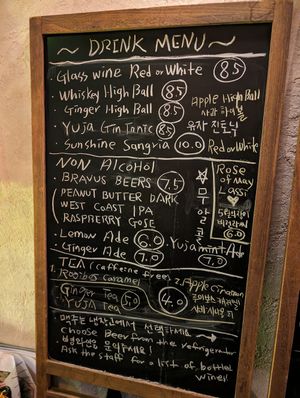 ~ DRINK MENU ~
· Glass wine Red or White 8.5
· Whiskey High Ball 8.5
· Ginger High Ball 8.5
Apple High Ball
사과 하이볼
· Yuja Gin Tonic 8.5 유자 진토닉
· Sunshine Sangria 10.0 Red or White
NON AlCoHol
· BRAVUS BEERS 7.5
PEANUT BUTTER DARK
WEST COAST IPA
RASPBERRY GOSE
☆ 무알콜
Rose of May
Lassi ♥
5월의장미
6.0
· Lemon Ade 6.0 · Yuja mint Ade
· Ginger Ade 7.0 7.0
TEA (caffeine free)
1. Rooibos caramel
2. Apple cinnamon
Ginger Tea 5.0
YUJA Tea
4.0
· 맥주는 냉장고에서 선택하세요
Choose Beer from the refrigerator
· 병와인은 문의주세요!
Ask the staff for a list of bottled
wine!!